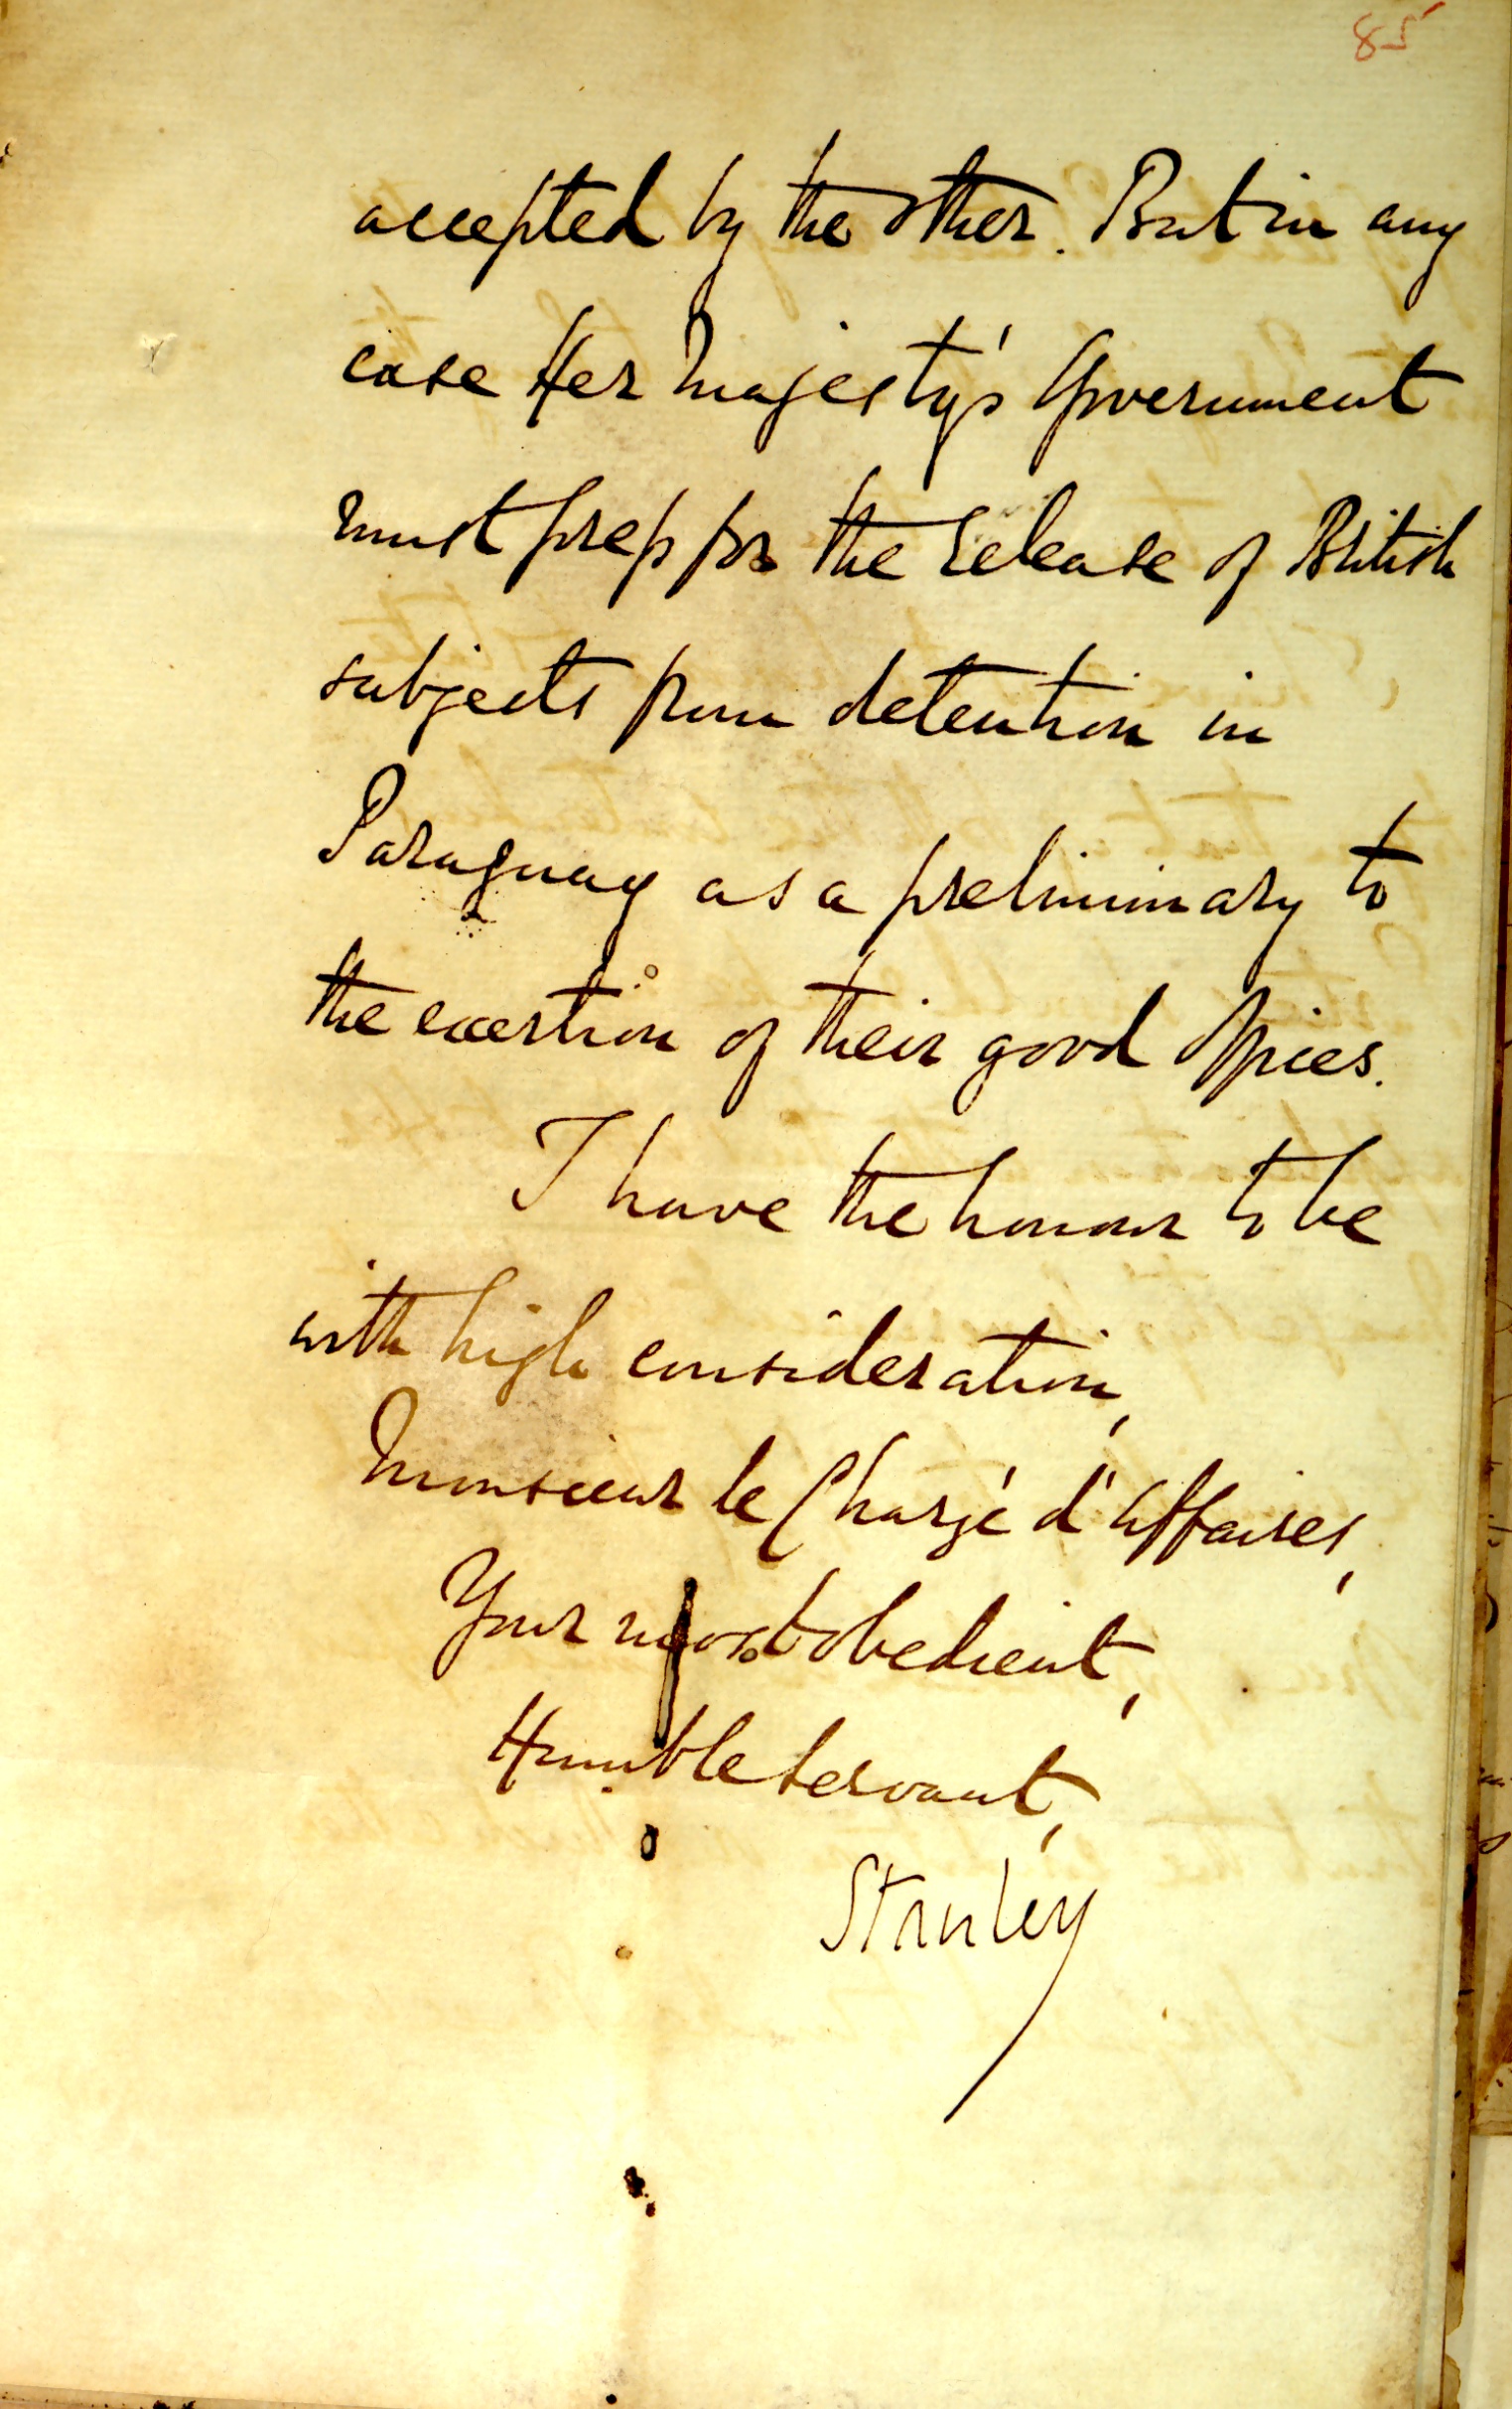 85
accepted by the other. But in any
case Her Majesty's Government
must press for the release of British
subjects from detention in
Paraguay as a preliminary to
the exertion of their good offices.
I have the honour to be
with high consideration,
Monsieur le Chargé d'Affaires,
Your most obedient,
Humble Servant,
Stanley